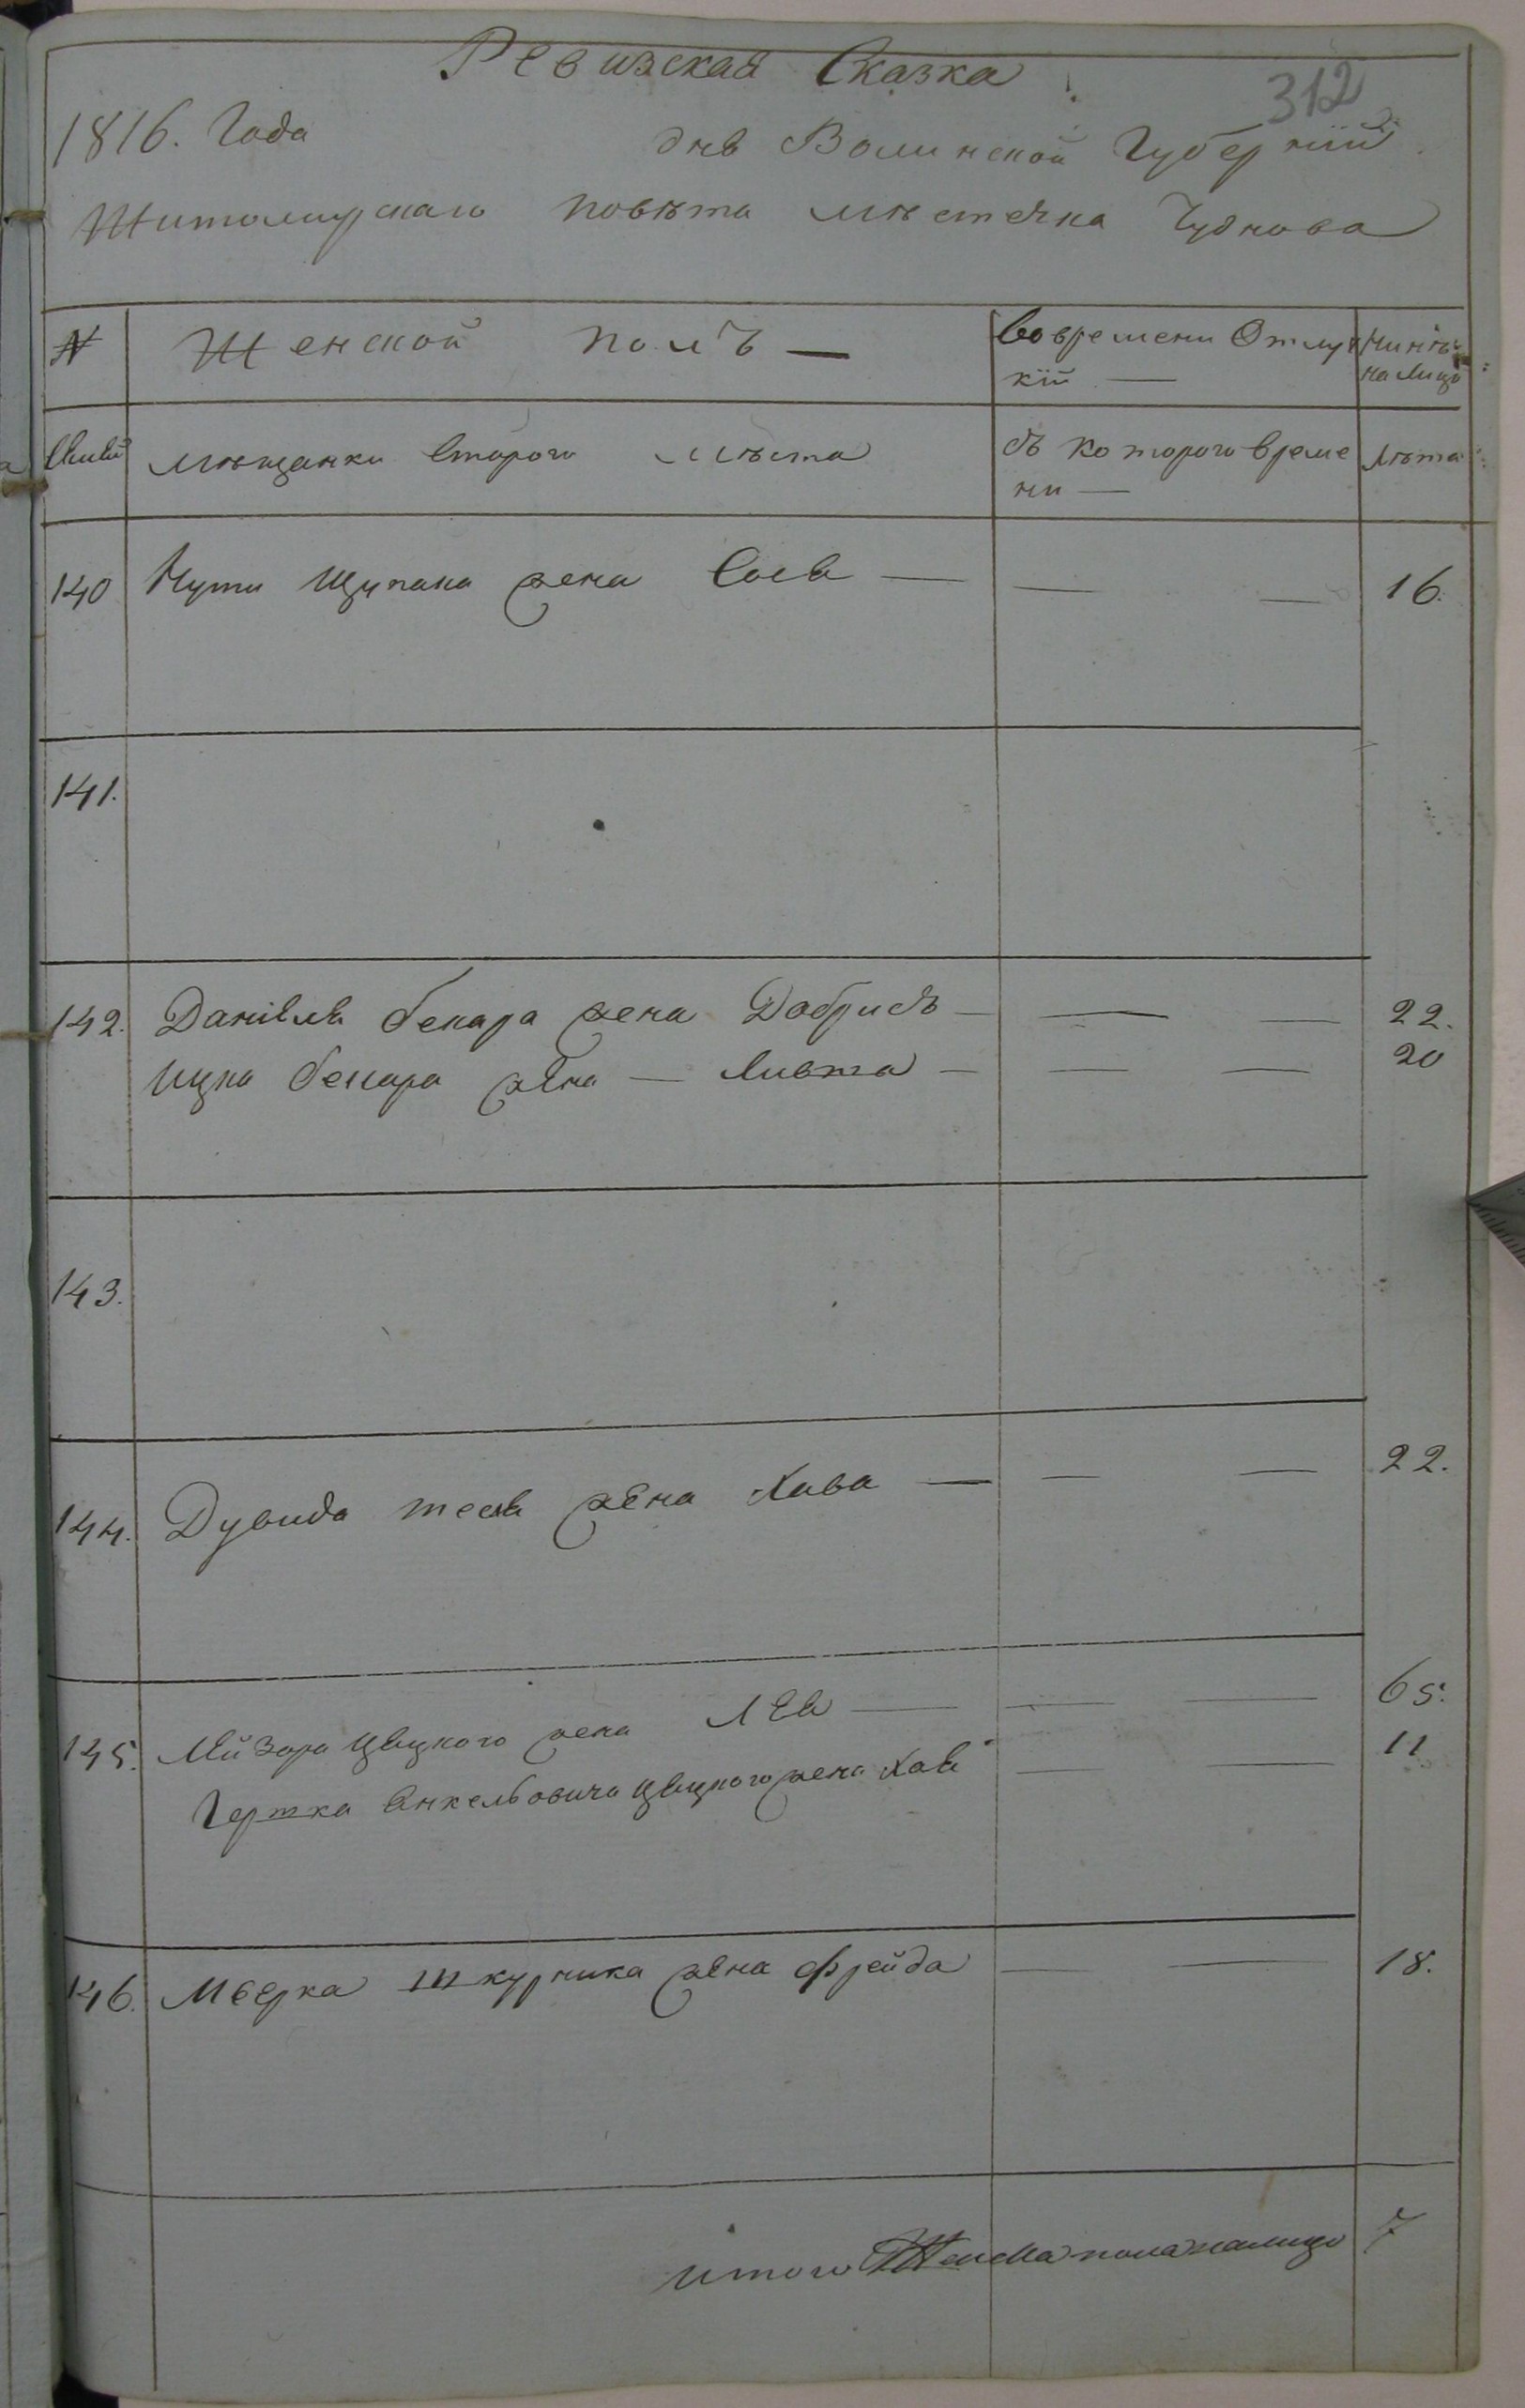 Ревизская Сказка
312
1816. Года днв Волинской Губернїй
Житомирскаго повѣта мѣстечка Чуднова
N Женской полЪ — Вовремени Отлуч Нинѣ
кїй — на лицо
мѣщанки второго мѣста съ которого време лѣта
ни —
140 Нути Щупака жена Сося — — — 16.
141.
142. Данiеля бекара жена Добрисъ — — — 22.
Ицка бекара жена — Ливта — — — 20
143.
144. Дувида теся жена Хава — — — 22.
145. Лейзора Цвцкого жена Лея — — — 65.
Гершка Янкельовича Цвцкого жена Хая — — 11
146. Мверка шкурника жена Фрейда — — 18.
итого Женска пола налицо 7